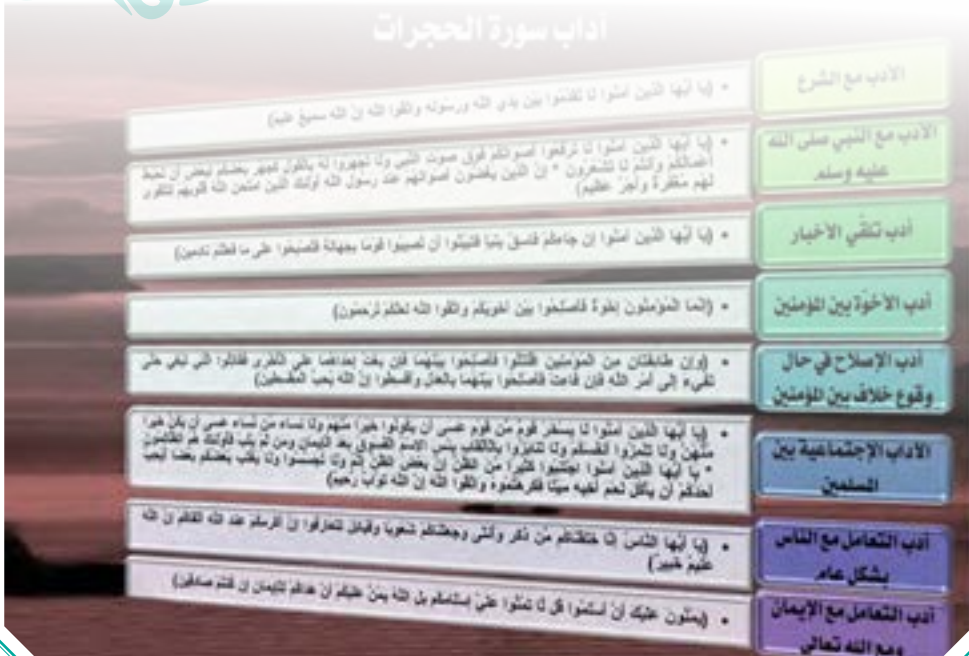 آداب سورة الحجرات
الأدب مع الشرع
• (يا أيها الذين آمنوا لا تقدموا بين يدي الله ورسوله واتقوا الله إن الله سميع عليم)
الأدب مع النبي صلى الله
عليه وسلم
• (يا أيها الذين آمنوا لا ترفعوا أصواتكم فوق صوت النبي ولا تجهروا له بالقول كجهر بعضكم لبعض أن تحبط
أعمالكم وأنتم لا تشعرون * إن الذين يغضون أصواتهم عند رسول الله أولئك الذين امتحن الله قلوبهم للتقوى
لهم مغفرة وأجر عظيم)
أدب تلقّي الأخبار
• (يا أيها الذين آمنوا إن جاءكم فاسق بنبأ فتبينوا أن تصيبوا قوما بجهالة فتصبحوا على ما فعلتم نادمين)
أدب الأخوّة بين المؤمنين
• (إنما المؤمنون إخوة فأصلحوا بين أخويكم واتقوا الله لعلكم ترحمون)
أدب الإصلاح في حال
وقوع خلاف بين المؤمنين
• (وإن طائفتان من المؤمنين اقتتلوا فأصلحوا بينهما فإن بغت إحداهما على الأخرى فقاتلوا التي تبغي حتى
تفيء إلى أمر الله فإن فاءت فأصلحوا بينهما بالعدل وأقسطوا إن الله يحب المقسطين)
الآداب الإجتماعية بين
المسلمين
• (يا أيها الذين آمنوا لا يسخر قوم من قوم عسى أن يكونوا خيرا منهم ولا نساء من نساء عسى أن يكن خيرا
منهن ولا تلمزوا أنفسكم ولا تنابزوا بالألقاب بئس الاسم الفسوق بعد الإيمان ومن لم يتب فأولئك هم الظالمون
* يا أيها الذين آمنوا اجتنبوا كثيرا من الظن إن بعض الظن إثم ولا تجسسوا ولا يغتب بعضكم بعضا أيحب
أحدكم أن يأكل لحم أخيه ميتا فكرهتموه واتقوا الله إن الله تواب رحيم)
أدب التعامل مع الناس
بشكل عام
• (يا أيها الناس إنا خلقناكم من ذكر وأنثى وجعلناكم شعوبا وقبائل لتعارفوا إن أكرمكم عند الله أتقاكم إن الله
عليم خبير)
أدب التعامل مع الإيمان
ومع الله تعالى
• (يمنون عليك أن أسلموا قل لا تمنوا علي إسلامكم بل الله يمن عليكم أن هداكم للإيمان إن كنتم صادقين)